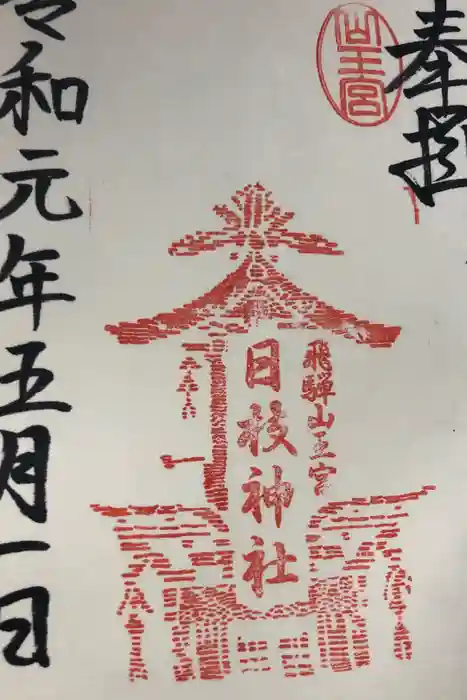 奉拝
山王宮
飛騨山王宮
日枝神社
令和元年五月一日